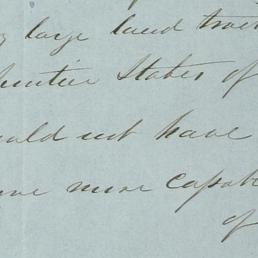 large land trac
States of
ould not have
more capab
of